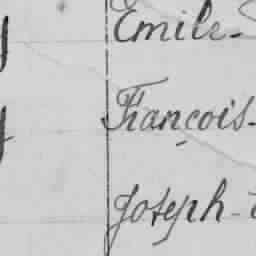 Emile-
François-
Joseph-